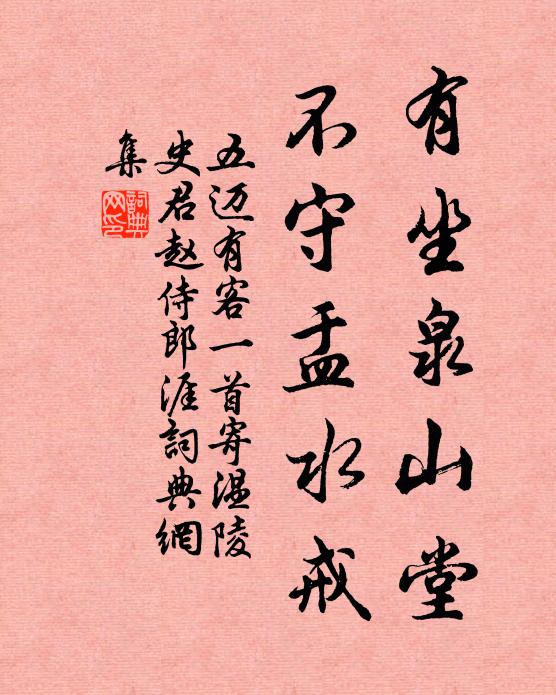 有坐泉山堂
不守盂水戒
五迈有客一首寄温陵
史君赵侍郎涯詞典網
集
詞典网印